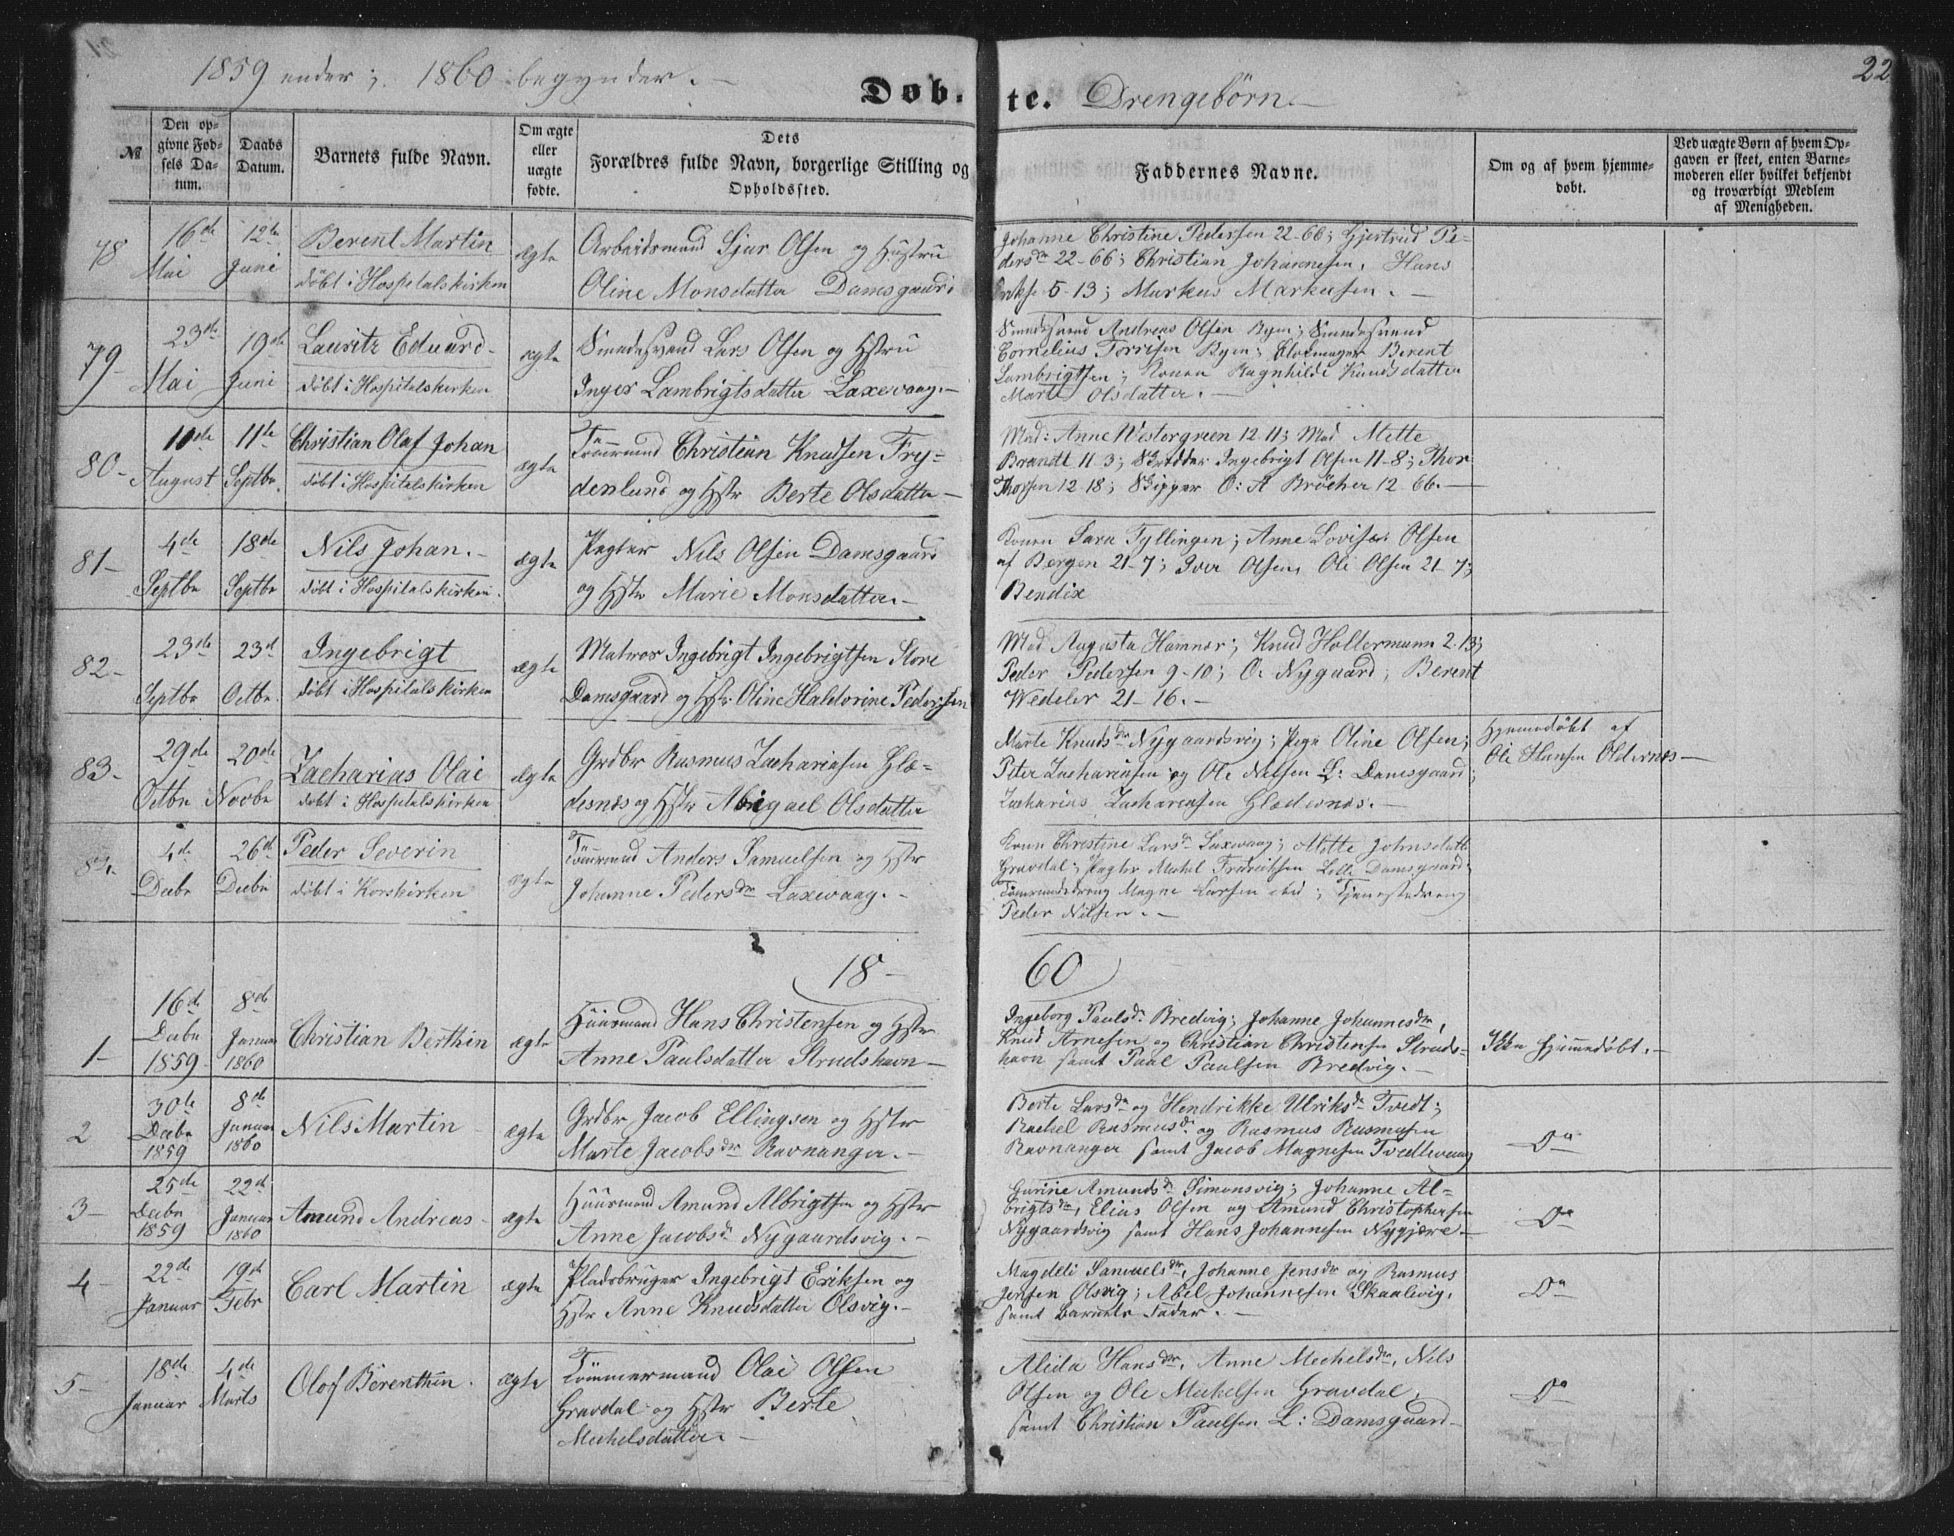 22
1859 ender; 1860 begynder. –
Døb- te. Drengebørn. –
№
Den op-
givne Fød-
sels Da-
tum.
Daabs
Datum.
Barnets fulde Navn.
Om ægte
eller
uægte
fødte.
Dets
Forældres fulde Navn, borgerlige Stilling og
Opholdssted.
Faddernes Navne.
Om og af hvem hjemme-
døbt.
Ved uægte Børn af hvem Op-
gaven er skeet, enten Barne-
moderen eller hvilket bekjendt
og troværdigt Medlem
af Menigheden.
78
16de
Mai
12te
Juni
Berent Martin
døbt i Hospitalskirken
ægte
Arbeidsmand Sjur Olsen og Hustru
Oline Monsdatter Damsgaard
Johanne Christine Pedersen 22-66; Gjertrud Pe-
dersdr 22-66; Christian Johannesen, Hans
5-13; Markus Markusen. –
79-
23de
Mai
19de
Juni
Lauritz Eduard-
døbt i Hospitalskirken
ægte
Smedesvend Lars Olsen og Hstru
Inger Lambrigtsdatter Laxevaag. –
Smedesvend Andreas Olsen Byen; Smedesvend
Cornelius Torrisen Byen; Berent
Lambrigtsen; Konen Ragnhilde Knudsdatter
Marte Olsdatter. –
80-
10de
August
11te
Septbr.
Christian Olaf Johan
døbt i Hospitalskirken
ægte
Tømrmand Christian Knudsen Fry-
denlund og Hstr Berte Olsdatter –
Mad: Anne Westergreen 12-11; Mad Mette
Brandt 11-3; Skrædder Ingebrigt Olsen 11-8; Thor
Thorsen 12-18; Skipper O: A Bröcher 12-66. –
81-
4de
Septbr
18de
Septbr
Nils Johan. –
døbt i Hospitalskirken.
ægte
Pagter Nils Olsen Damsgaard
og Hstr Marie Monsdatter. –
Konen Sara Tyllingen; Anne Lovise Olsen
af Bergen 21-7; Iver Olsen, Ole Olsen 21-7;
Bendix
82-
23de
Septbr
23d
Octbr.
Ingebrigt
døbt i Hospitalskirken
ægte
Matros Ingebrigt Ingebrigtsen Store
Damsgaard og Hstr Oline Haldorine Pedersen
Mad Augusta Hamner; Knud Holtermann 2-13;
Peder Pedersen 9-10; O. Nygaard; Berent
Wedeler 21-16. –
83-
29de
Octbr
20de
Novbr
Zacharias Olai
døbt i Hospitalskirken
ægte
Grdbr Rasmus Zachariasen Glæ-
desnæs og Hstr Abigael Olsdatter
Marte Knudsdr Nygaardsvig; Pige Oline Olsen;
Peter Zachariasen og Ole Nilsen L: Damsgaard;
Zacharias Zachariasen Glædesnæs. –
Hjemmedøbt af
Ole Hansen Oldernæs –
84-
4de
Decbr
26d
Decbr
Peder Severin
døbt i Korskirken
ægte
Tømrmand Anders Samuelsen og Hstr
Johanne Pedersdr Laxevaag. –
Konen Christine Larsdr Laxevaag; Mette Johnsdatt
Gravdal; Pagter Mikkel Fredriksen Lille Damsgaard;
Tømmandsdreng Magne Larsen ibid; Tjenestedreng
Peder Nilsen. –
18- 60
1-
16de
Decbr
1859
8de
Januar
1860
Christian Berthin
ægte
Huusmand Hans Christensen og Hstr
Anne Paulsdatter Strudshavn –
Ingeborg Paulsdr Bredvig; Johanne Johannesdr,
Knud Arnesen og Christian Christensen Struds-
havn samt Paul Paulsen Bredvig. –
Ikke hjemmedøbt. –
2
30te
Decbr
1859
8de
Januar
1860
Nils Martin –
ægte
Grdbr Jacob Ellingsen og Hstr
Marte Jacobsdr Ravnanger. –
Berte Larsdr og Hendrikke Ulriksdr Tvedt;
Rachel Rasmusdr og Rasmus Rasmusen
Ravnanger samt Jacob Magnesen Tvedtevaag
Do
3-
25de
Decbr
1859
22d
Januar
1860
Amund Andreas-
ægte
Huusmand Amund Albrigtsen og Hstr
Anne Jacobsdr Nygaardsvig. –
Gurine Amundsdr Simonsvig; Johanne Al-
brigtsdr, Elias Olsen og Amund Christophersen
Nygaardsvig samt Hans Johannesen Nygjære –
Do
4-
22de
Januar
19de
Febr
Carl Martin
ægte
Pladsbruger Ingebrigt Eriksen og
Hstr Anne Knudsdatter Olsvig. –
Magdeli Samuelsdr, Johanne Jensdr og Rasmus
Jensen Olsvig; Abel Johannesen Skaalevig,
samt Barnets Fader. –
Do
5-
18de
Januar
4de
Marts
Olof Berenthin.
ægte
Tømmermand Olai Olsen
Gravdal og Hstr Berte
Mickelsdatter. –
Alida Hansdr, Anne Mechelsdr, Nils
Olsen og Ole Mickelsen Gravdal,
samt Christian Paulsen L: Damsgaard –
Do